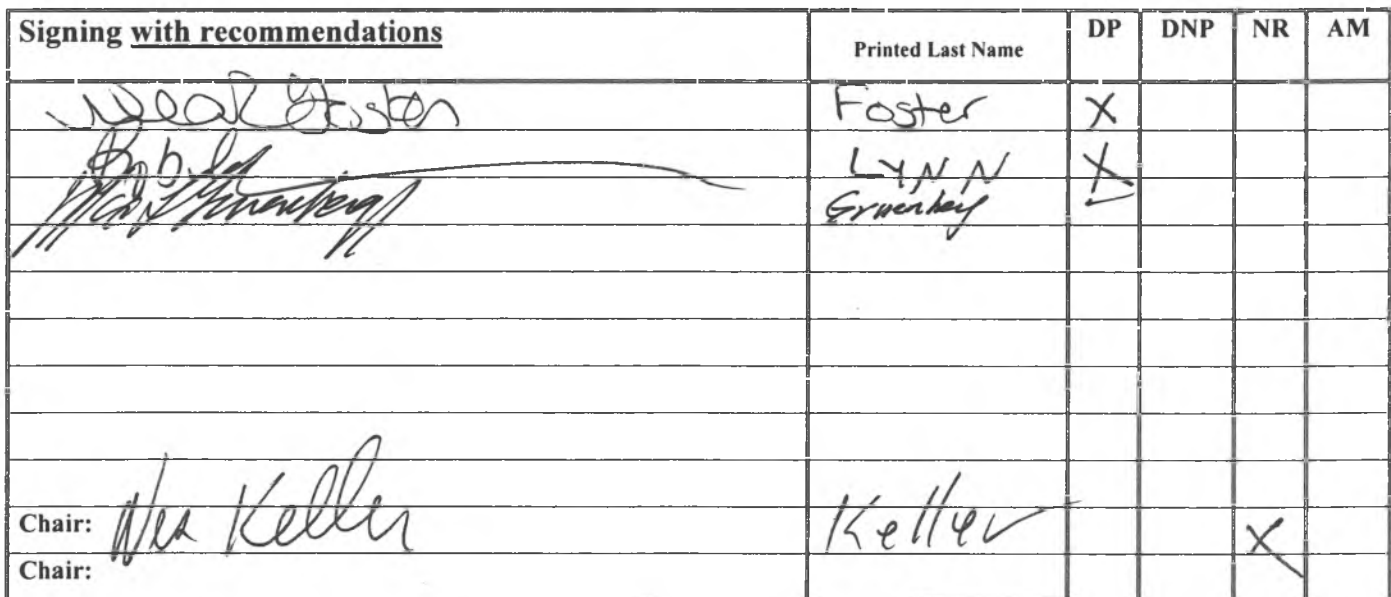 Signing with recommendations Printed Last Name DP DNP NR AM
Neal Foster Foster X
Bob Lynn LYNN X
Gruenberg Gruenberg
Chair: Wes Keller Keller X
Chair: